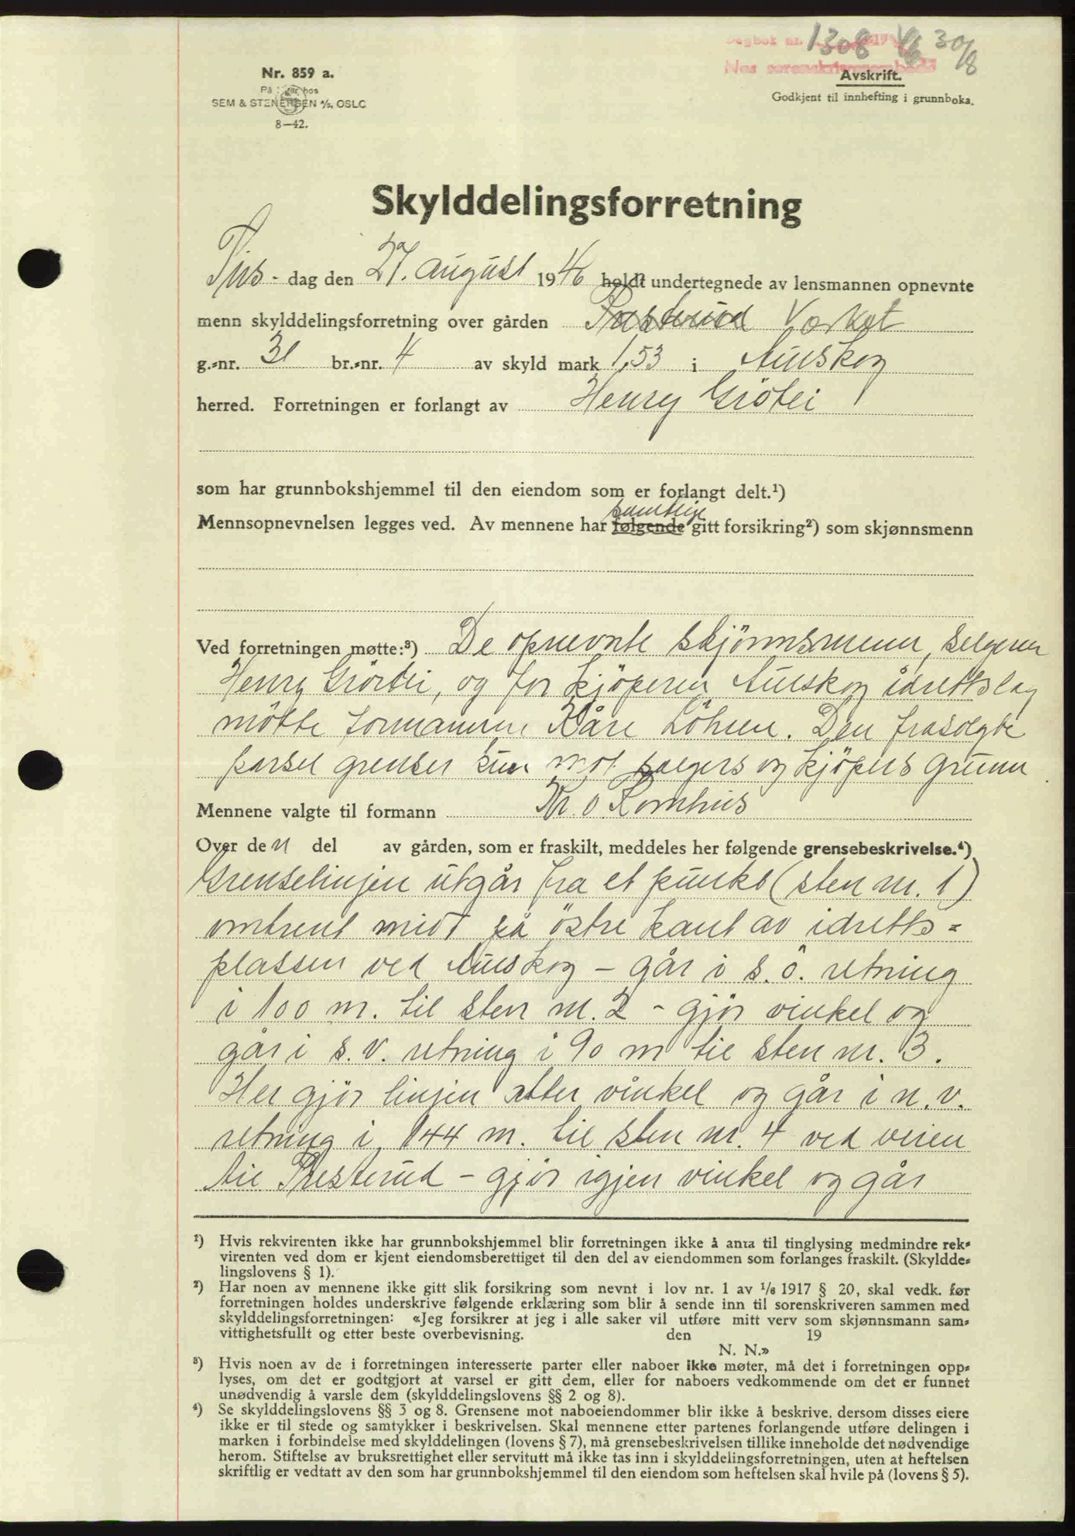 Dagbok nr. 1308 1946 30/8
Nes sorenskriverembede
Nr. 859 a.
På lager hos
SEM & STENERSEN A/S, OSLO
8—42.
Avskrift.
Godkjent til innhefting i grunnboka.
Skylddelingsforretning
Tirs- dag den 27. august 1946 holdt undertegnede av lensmannen opnevnte
menn skylddelingsforretning over gården Presterud Værket
g.-nr. 31 br.-nr. 4 av skyld mark 1,53 i Aurskog
herred. Forretningen er forlangt av Henry Grötei
som har grunnbokshjemmel til den eiendom som er forlangt delt.¹)
samtlige
Mennsopnevnelsen legges ved. Av mennene har følgende gitt forsikring²) som skjønnsmenn
Ved forretningen møtte:³) De opnevnte skjönnsmenn, selgeren
Henry Grötei, og for kjöperen Aurskog idrettslag
mötte formannen Kåre Löhren. Den frasolgte
parsel grenser kun mot selgers og kjöpers grunn
Mennene valgte til formann Kr. O. Romhus
Over den del av gården, som er fraskilt, meddeles her følgende grensebeskrivelse.⁴)
Grenselinjen utgår fra et punkt (sten nr. 1)
omtrent midt på östre kant av idretts-
plassen ved Aurskog – går i s.ö. retning
i 100 m. til sten nr. 2 – gjör vinkel og
går i s.v. retning i 90 m til sten nr. 3.
Her gjör linjen atter vinkel og går i n.v.
retning i 144 m. til sten nr. 4 ved veien
til Presterud – gjör igjen vinkel og går
¹) Hvis rekvirenten ikke har grunnbokshjemmel blir forretningen ikke å anta til tinglysing medmindre rek-
virenten ved dom er kjent eiendomsberettiget til den del av eiendommen som forlanges fraskilt. (Skyldde-
lingslovens § 1).
²) Har noen av mennene ikke gitt slik forsikring som nevnt i lov nr. 1 av 1/6 1917 § 20, skal vedk. før
forretningen holdes underskrive følgende erklæring som blir å sende inn til sorenskriveren sammen med
skylddelingsforretningen: «Jeg forsikrer at jeg i alle saker vil utføre mitt verv som skjønnsmann sam-
vittighetsfullt og etter beste overbevisning. den 19
N. N.»
³) Hvis noen av de i forretningen interesserte parter eller naboer ikke møter, må det i forretningen opp-
lyses, om det er godtgjort at varsel er gitt dem, eller for naboers vedkommende om det er funnet
unødvendig å varsle dem (skylddelingslovens §§ 2 og 8).
⁴) Se skylddelingslovens §§ 3 og 8. Grensene mot naboeiendommer blir ikke å beskrive, dersom disses eiere
ikke er til stede og samtykker i beskrivelsen. Skal mennene etter partenes forlangende utføre delingen i
marken i forbindelse med skylddelingen (lovens § 7), må grensebeskrivelsen tillike inneholde det nødvendige
herom. Stiftelse av bruksrettighet eller servitutt må ikke tas inn i skylddelingsforretningen, uten at heftelsen
skriftlig er vedtatt av den som har grunnbokshjemmel til den eiendom som heftelsen skal hvile på (lovens § 5).